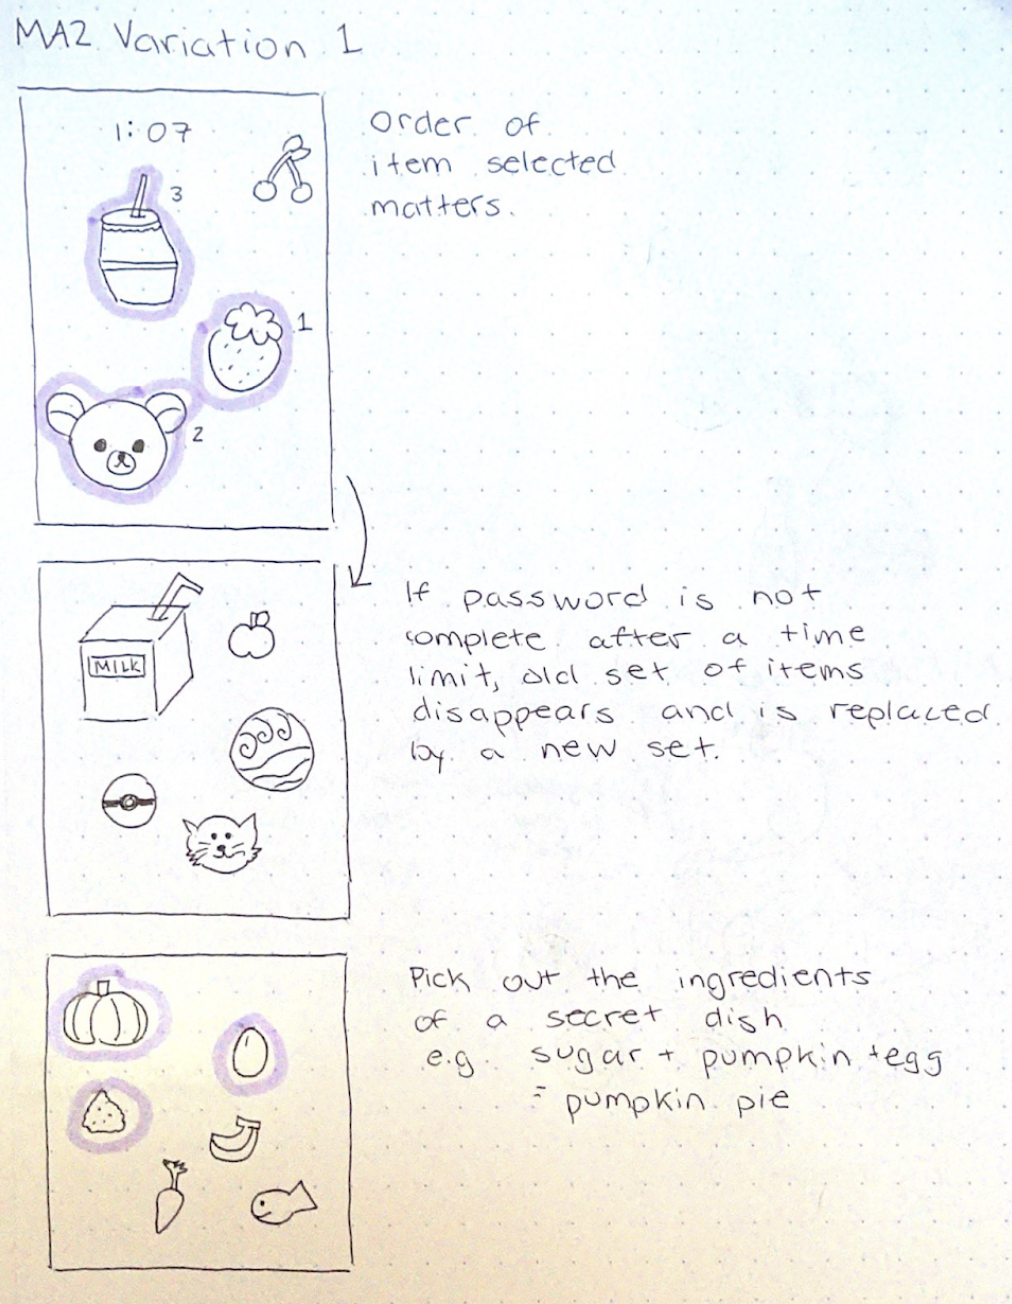 MA2 Variation 1
1:07
3
order of
item selected
matters.
1
2
MILK
If password is not
complete after a time
limit, old set of items
disappears and is replaced
by a new set.
Pick out the ingredients
of a secret dish
e.g. sugar + pumpkin + egg
= pumpkin pie